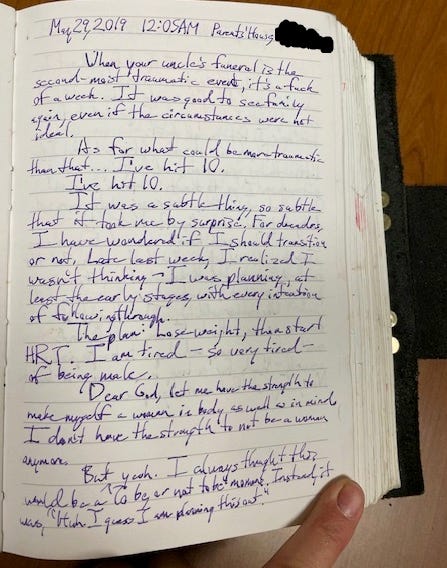 May 29, 2019 12:05AM Parents' House
When your uncle's funeral is the
second-most traumatic event, it's a fuck
of a week. It was good to see family
again, even if the circumstances were not
ideal.
As for what could be more traumatic
than that... I've hit 10.
I've hit 10.
It was a subtle thing, so subtle
that it took me by surprise. For decades,
I have wondered if I should transition
or not. Late last week, I realized I
wasn't thinking – I was planning, at
least the early stages, with every intention
of following through.
The plan: Lose weight, then start
HRT. I am tired – so very tired –
of being male.
Dear God, let me have the strength to
make myself a woman in body, as well as in mind
I don't have the strength to not be a woman
anymore.
But yeah. I always thought this
would be a "to be or not to be" moment. Instead, it
was, "Huh. I guess I am planning this out."